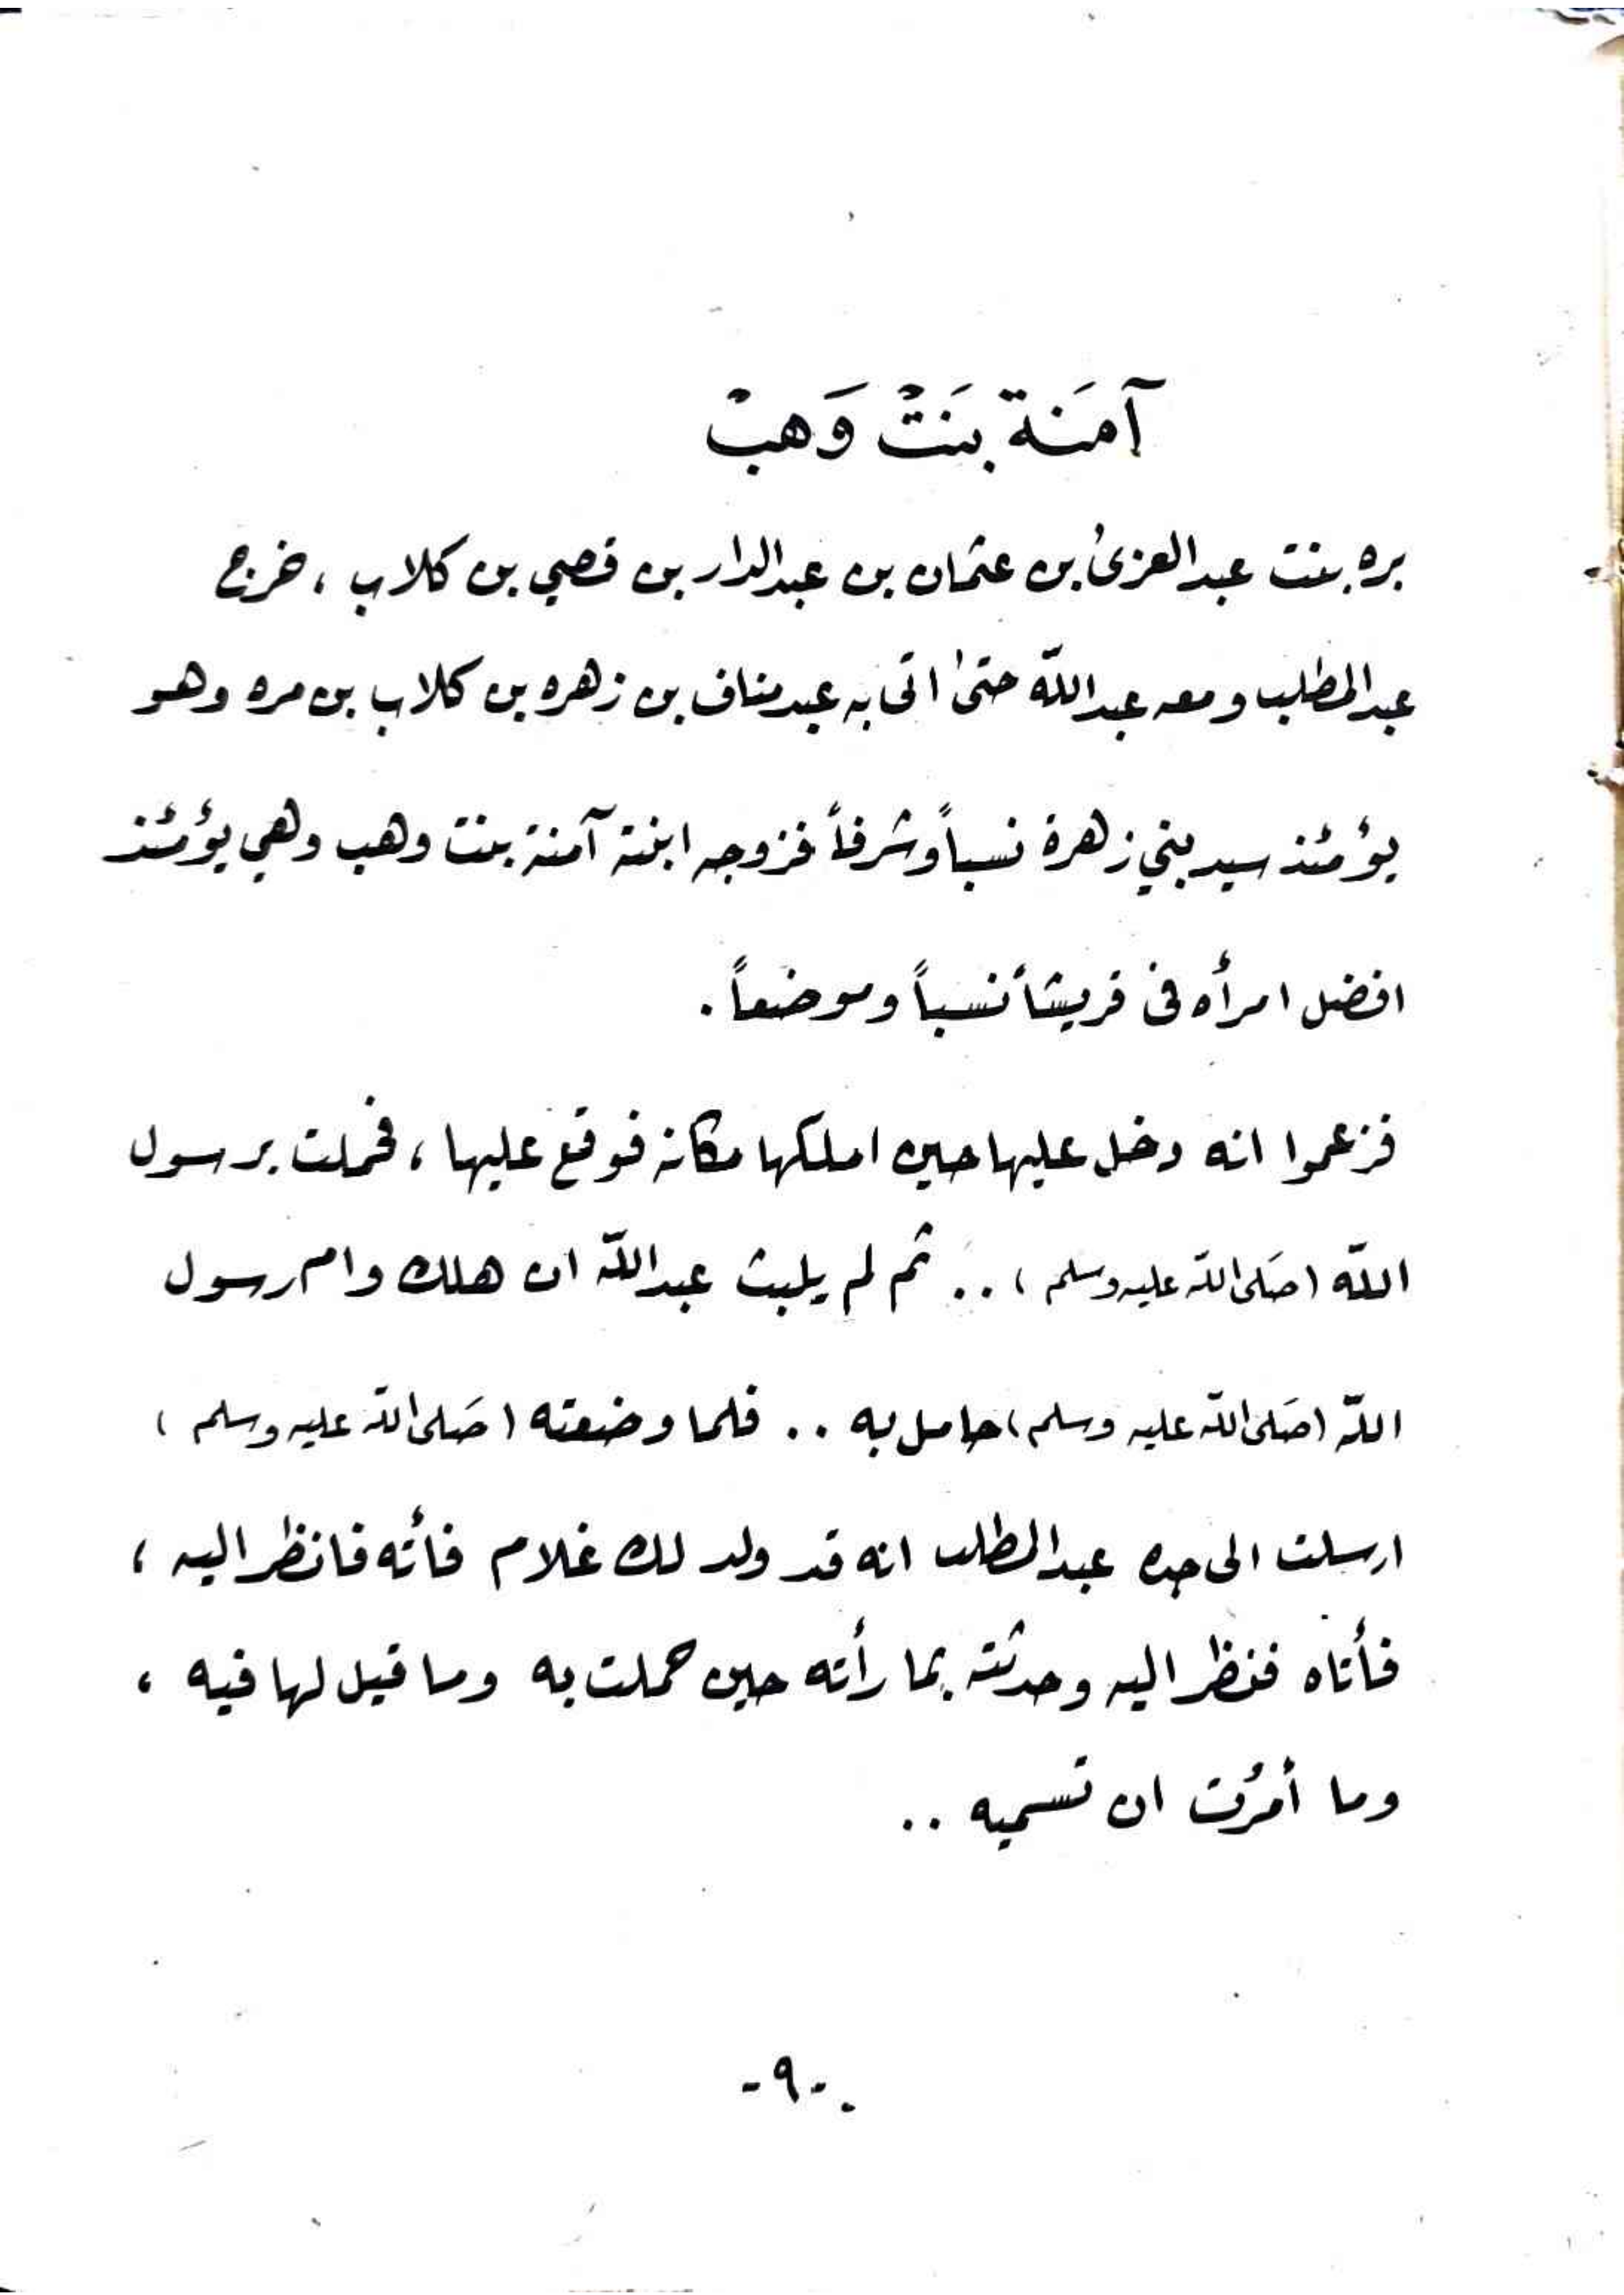 آمَنَة بِنَتْ وَهبْ
بره بنت عبدالعزىٰ بن عثمان بن عبدالدار بن قصي بن كلاب ، خرج
عبدالمطلب ومعه عبدالله حتىٰ اتى به عبدمناف بن زهره بن كلاب بن مره وهو
يؤمئذ سيد بني زهرة نسباً وشرفاً فزوجه ابنته آمنة بنت وهب وهي يؤمئذ
افضل امرأه في قريشاً نسباً وموضعاً .
فزعموا انه دخل عليها حين املكها مكانه فوقع عليها ، فحملت برسول
الله (صَلى الله عليه وسلم) .. ثم لم يلبث عبدالله ان هلك وام رسول
الله (صَلى الله عليه وسلم) حامل به .. فلما وضعته (صَلى الله عليه وسلم)
ارسلت الى جده عبدالمطلب انه قد ولد لك غلام فأته فانظر اليه ،
فأتاه فنظر اليه وحدثته بما رأته حين حملت به وما قيل لها فيه ،
وما أمرُت ان تسميه ..
-٩-